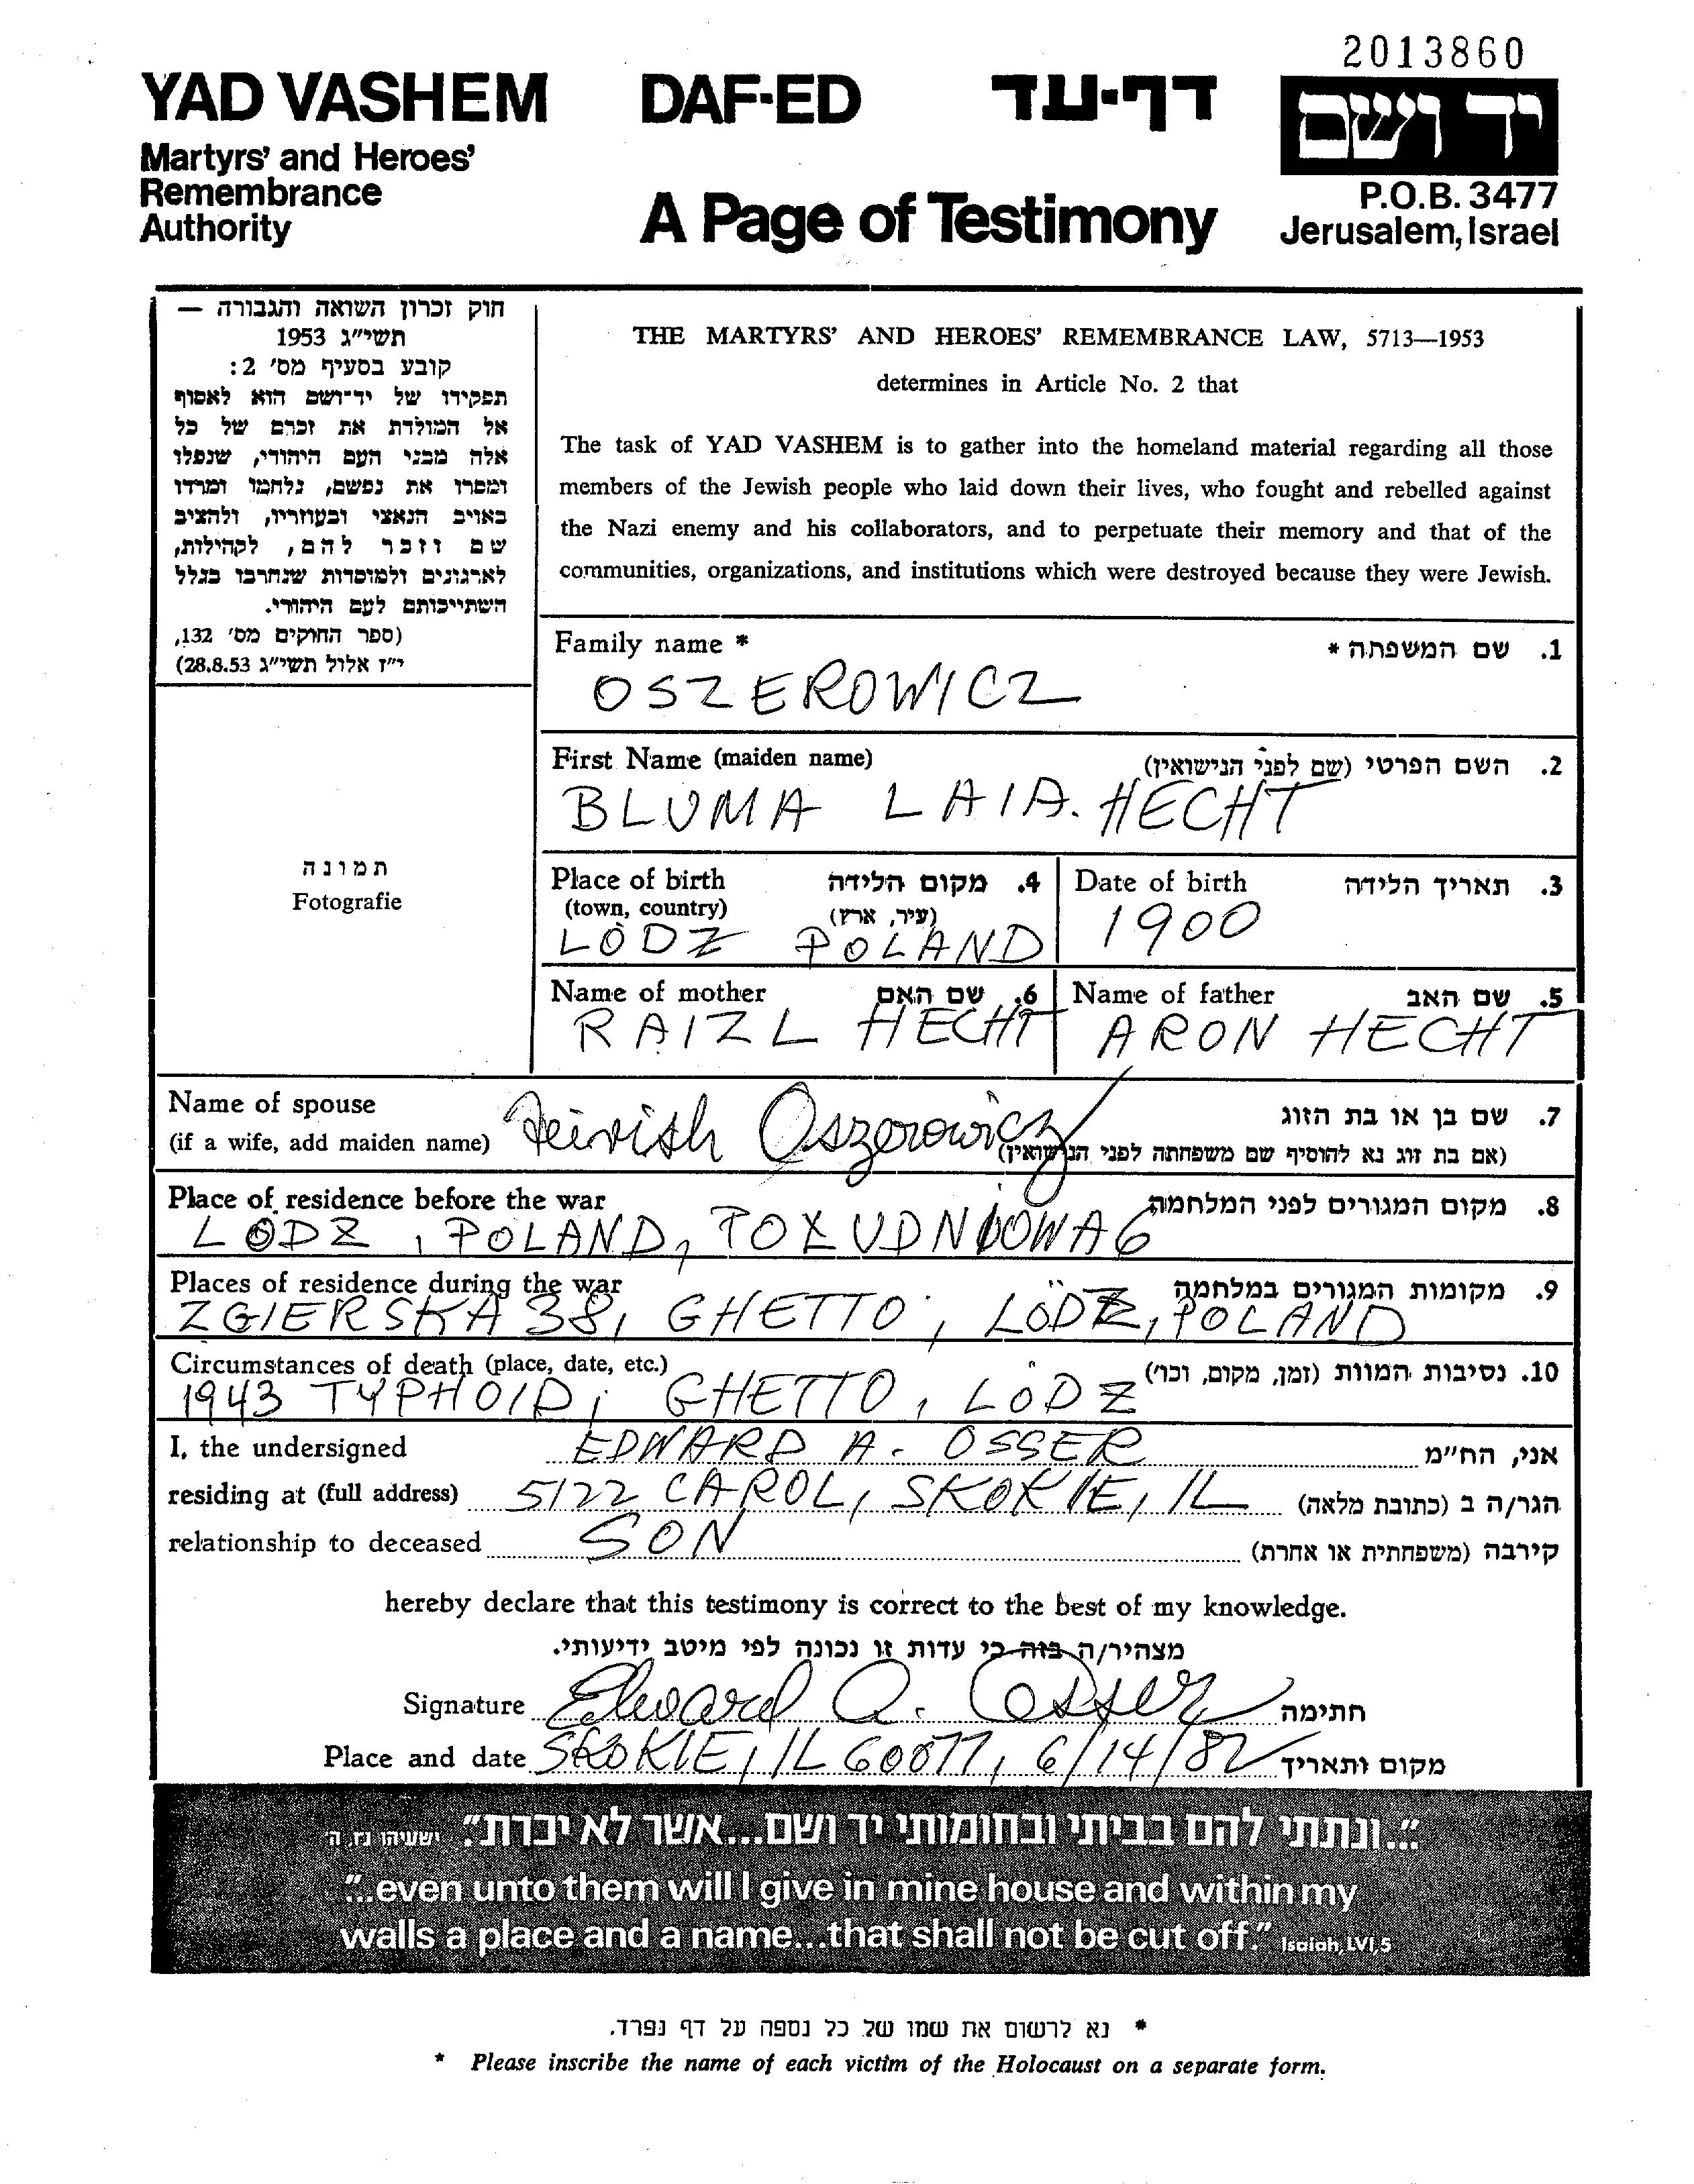 2013860
YAD VASHEM
DAF-ED
דף-עד
יד ושם
Martyrs' and Heroes'
Remembrance
Authority
A Page of Testimony
P.O.B. 3477
Jerusalem, Israel
חוק זכרון השואה והגבורה —
תשי"ג 1953
קובע בסעיף מס' 2:
תפקידו של יד-ושם הוא לאסוף
אל המולדת את זכרם של כל
אלה מבני העם היהודי, שנפלו
ומסרו את נפשם, נלחמו ומרדו
באויב הנאצי ובעוזריו, ולהציב
שם וזכר להם, לקהילות,
לארגונים ולמוסדות שנחרבו בגלל
השתייכותם לעם היהודי.
(ספר החוקים מס' 132,
י"ז אלול תשי"ג 28.8.53)
THE MARTYRS' AND HEROES' REMEMBRANCE LAW, 5713—1953
determines in Article No. 2 that
The task of YAD VASHEM is to gather into the homeland material regarding all those
members of the Jewish people who laid down their lives, who fought and rebelled against
the Nazi enemy and his collaborators, and to perpetuate their memory and that of the
communities, organizations, and institutions which were destroyed because they were Jewish.
Family name * 1. שם המשפחה *
OSZEROWICZ
First Name (maiden name) 2. השם הפרטי (שם לפני הנישואין)
BLUMA LAIA. HECHT
תמונה
Fotografie
Place of birth 4. מקום הלידה
(town, country) (עיר, ארץ)
LODZ POLAND
Date of birth 3. תאריך הלידה
1900
Name of mother 6. שם האם
RAIZL HECHT
Name of father 5. שם האב
ARON HECHT
Name of spouse 7. שם בן או בת הזוג
(if a wife, add maiden name) Feivish Oszerowicz (אם בת זוג נא להוסיף שם משפחתה לפני הנישואין)
Place of residence before the war 8. מקום המגורים לפני המלחמה
LODZ, POLAND, POŁUDNIOWA 6
Places of residence during the war 9. מקומות המגורים במלחמה
ZGIERSKA 38, GHETTO, LODZ, POLAND
Circumstances of death (place, date, etc.) 10. נסיבות המוות (זמן, מקום, וכו')
1943 TYPHOID; GHETTO, LODZ
I, the undersigned EDWARD A. OSSER אני, הח"מ
residing at (full address) 5122 CAROL, SKOKIE, IL הגר/ה ב (כתובת מלאה)
relationship to deceased SON קירבה (משפחתית או אחרת)
hereby declare that this testimony is correct to the best of my knowledge.
מצהיר/ה בזה כי עדות זו נכונה לפי מיטב ידיעותי.
Signature Edward A. Osser חתימה
Place and date SKOKIE, IL 60077, 6/14/82 מקום ותאריך
"...ונתתי להם בביתי ובחומותי יד ושם...אשר לא יכרת". ישעיהו נו, ה
"...even unto them will I give in mine house and within my
walls a place and a name...that shall not be cut off." Isaiah, LVI,5
* נא לרשום את שמו של כל נספה על דף נפרד.
* Please inscribe the name of each victim of the Holocaust on a separate form.